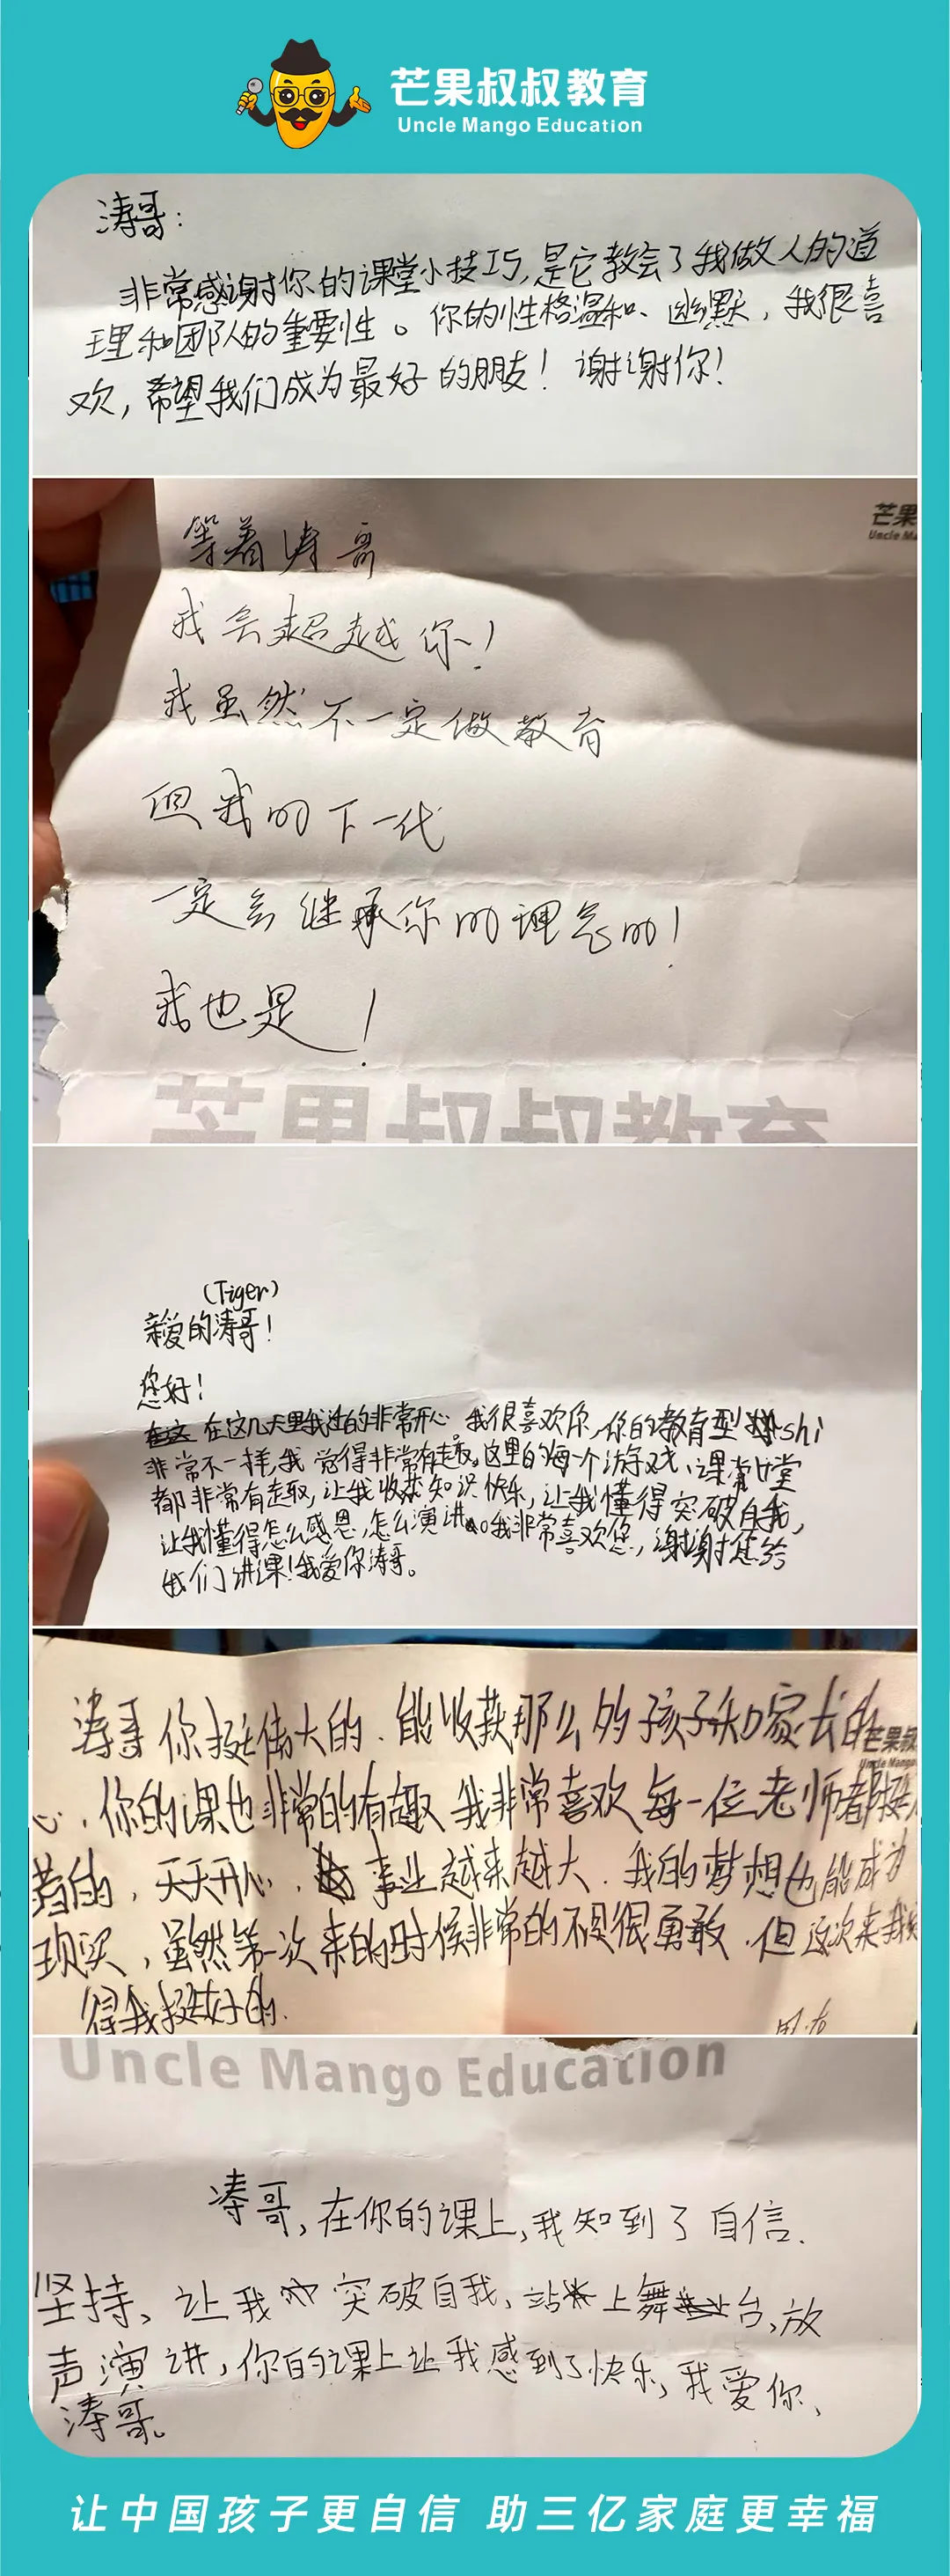 芒果叔叔教育
Uncle Mango Education
涛哥:
非常感谢你的课堂小技巧,是它教会了我做人的道
理和团队的重要性。你的性格温和、幽默,我很喜
欢,希望我们成为最好的朋友!谢谢你!
芒果
Uncle Ma
等着涛哥
我会超越你!
我虽然不一定做教育
但我的下一代
一定会继承你的理念的!
我也是!
芒果叔叔教育
(Tiger)
亲爱的涛哥!
您好!
在这几天里我过的非常开心,我很喜欢你,你的教育型shi
非常不一样,我觉得非常有趣。这里的每一个游戏、课堂
都非常有趣,让我收获知识快乐,让我懂得突破自我,
让我懂得怎么感恩,怎么演讲。我非常喜欢您,谢谢您给
我们讲课!我爱你涛哥。
涛哥你挺伟大的.能收获那么多孩子和家长的
芒果叔
Uncle Mango
心.你的课也非常的有趣 我非常喜欢 每一位老师都挺
着的,天天开心.事业越来越大.我的梦想也能成为
现实,虽然第一次来的时候非常的不是很勇敢.但这次来我
得我挺好的.
Uncle Mango Education
涛哥,在你的课上,我知到了自信.
坚持、让我突破自我,站上舞台,放
声演讲,你的课上让我感到了快乐,我爱你、
涛哥。
让中国孩子更自信 助三亿家庭更幸福